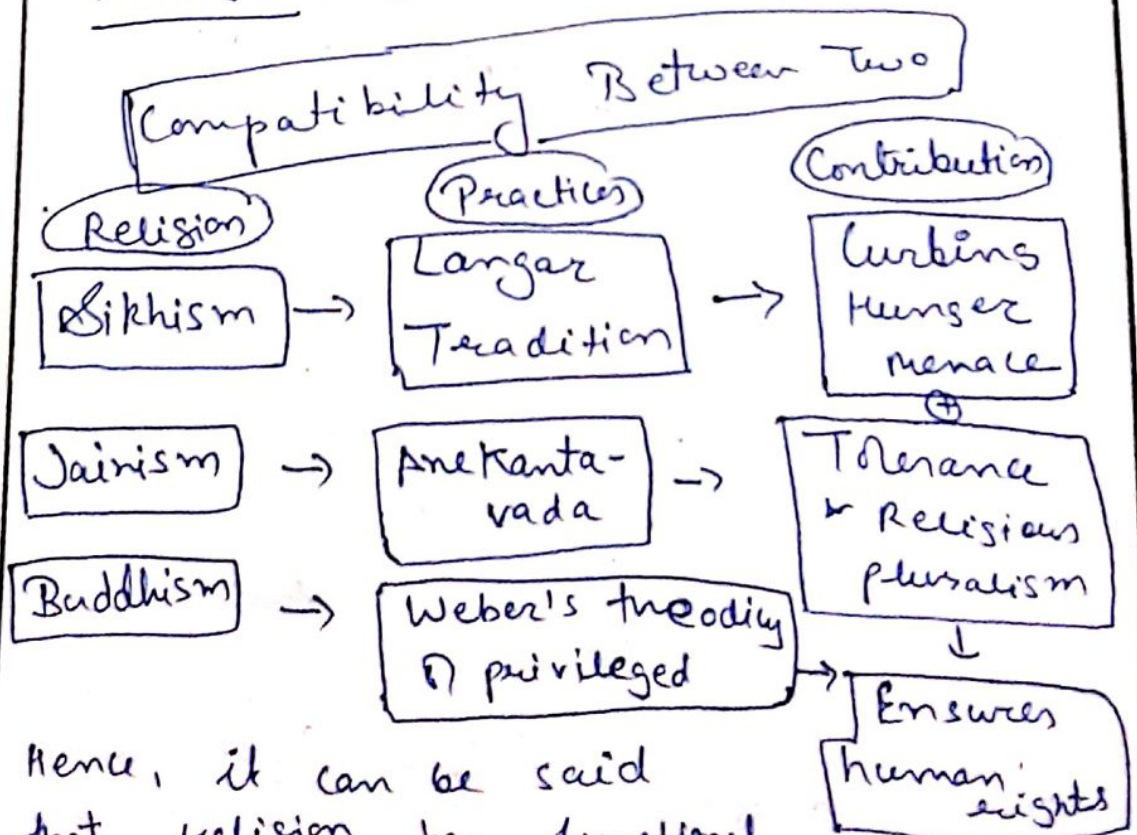 Compatibility Between Two
Religion
Practices
Contribution
Sikhism →
Langar
Tradition
→
Curbing
Hunger
menace
+
Jainism →
Anekanta-
vada
→
Tolerance
Religious
pluralism
↓
Buddhism →
Weber's theodicy
privileged
→
Ensures
human
rights
Hence, it can be said
religion